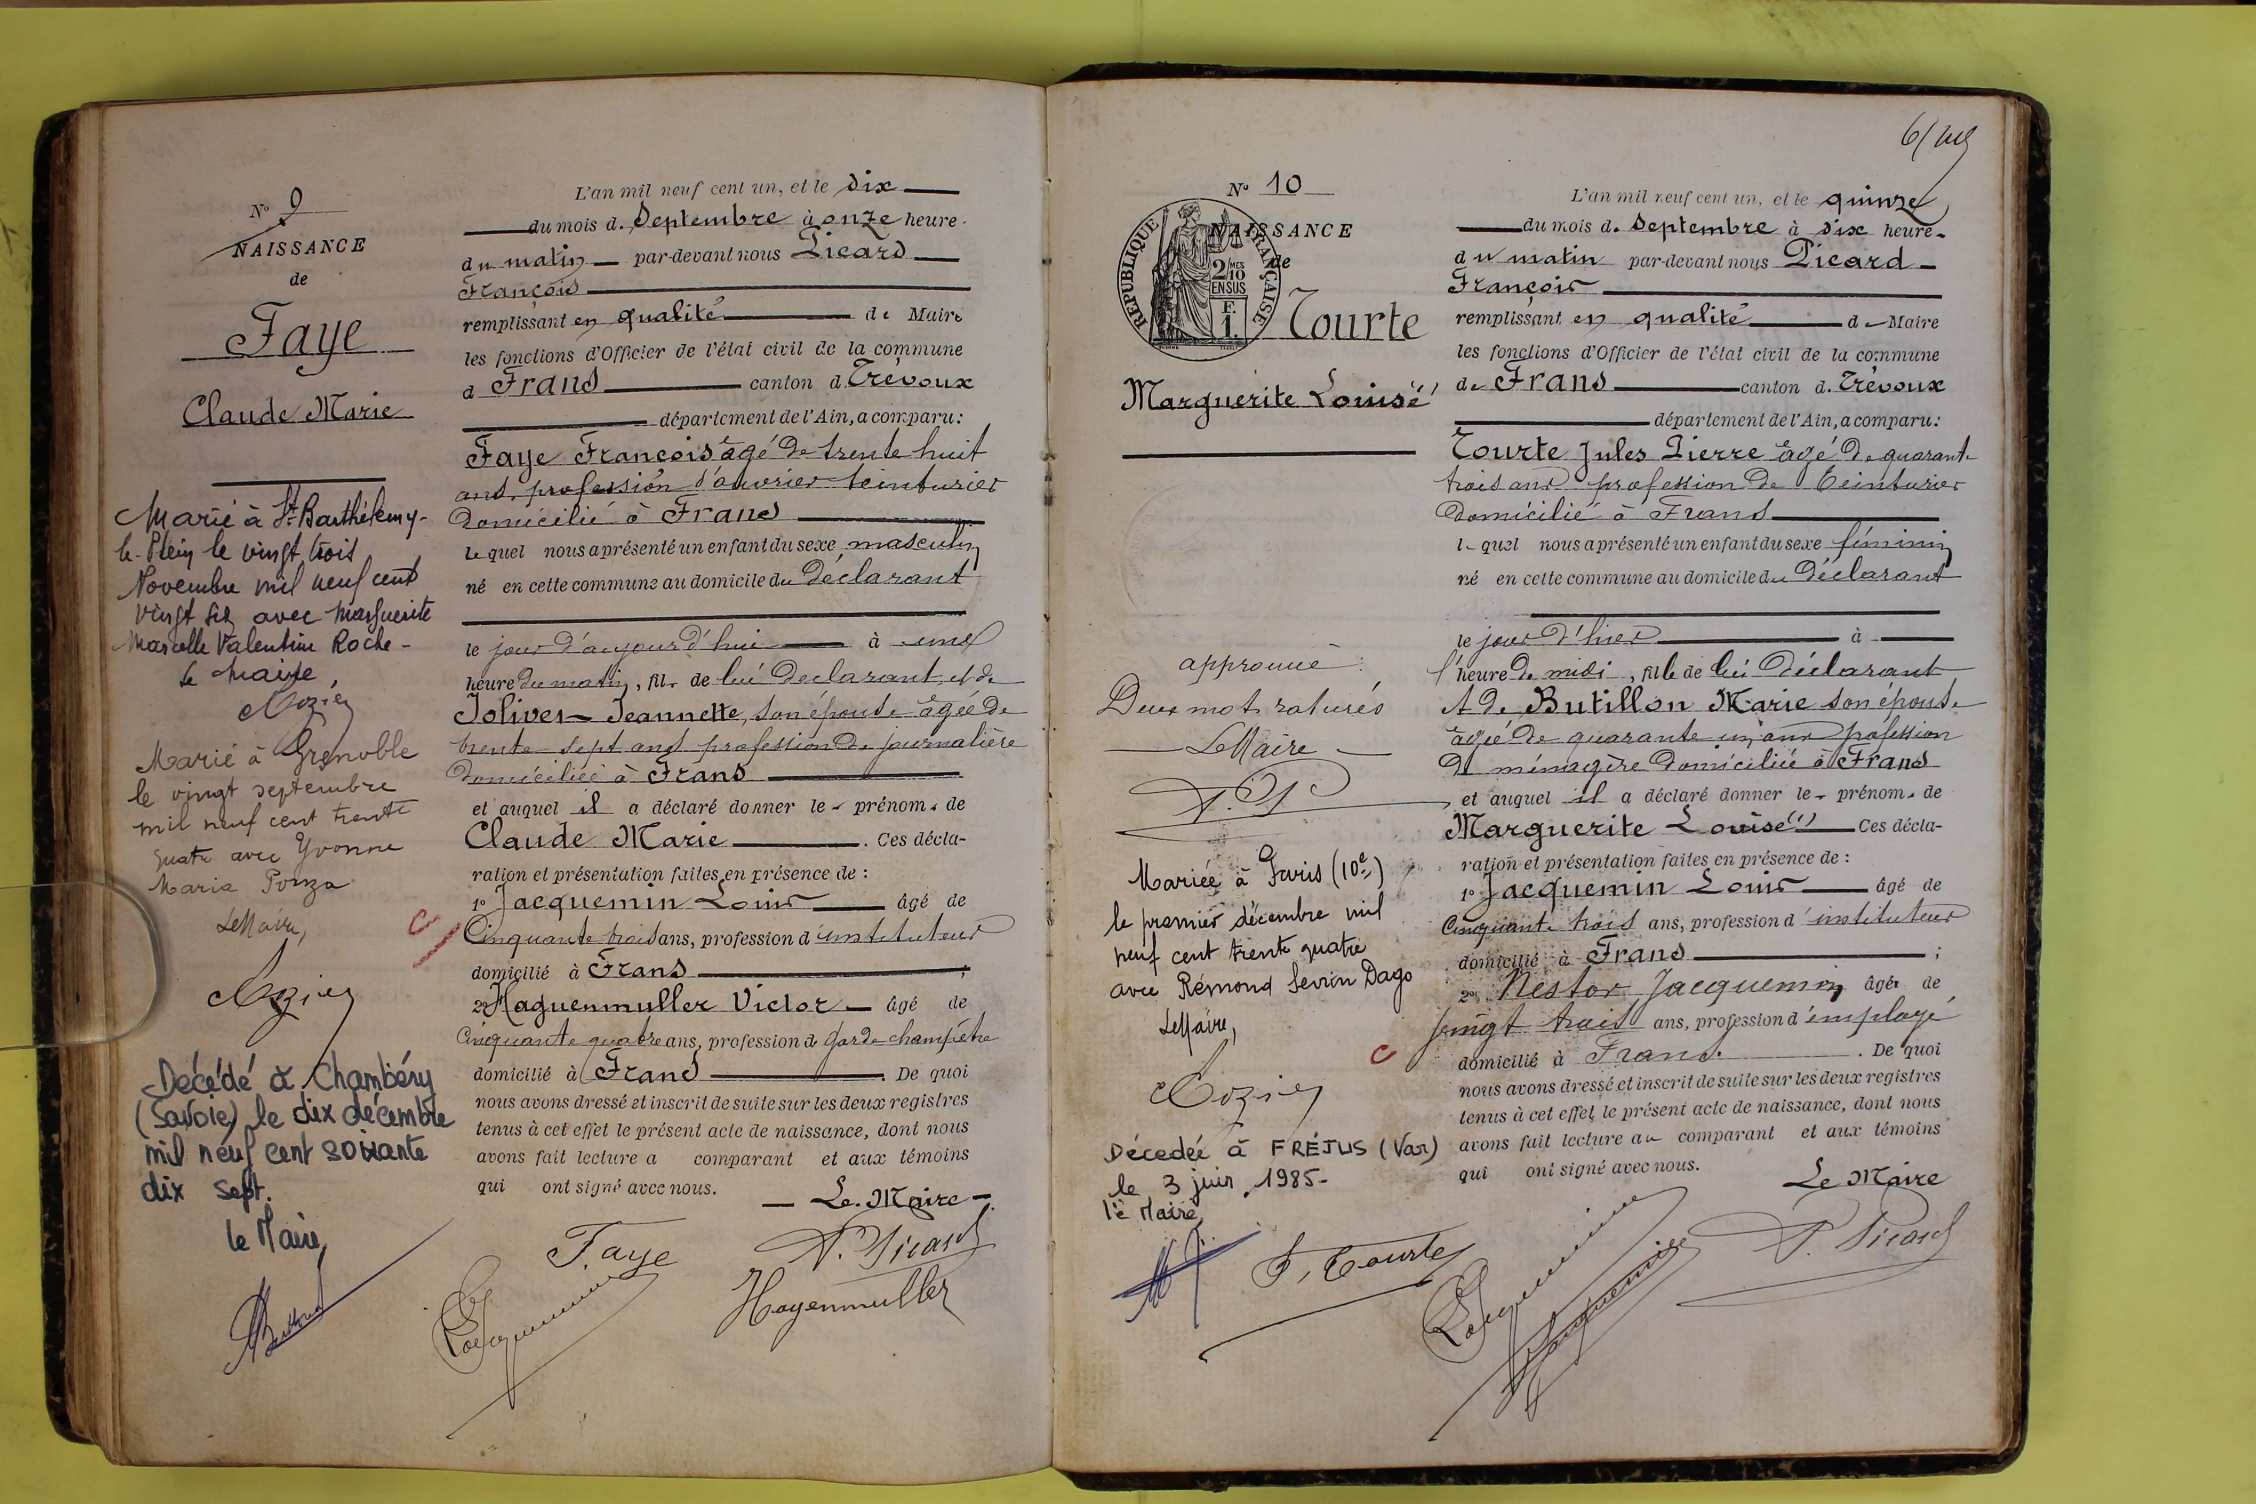 N° 9
NAISSANCE
de
Faye
Claude Marie
Marié à St Barthélemy-
le-Plein le vingt trois
Novembre mil neuf cent
vingt six avec Marguerite
Marcelle Valentine Roche -
Le Maire,
Marié à Grenoble
le vingt septembre
mil neuf cent trente
quatre avec Yvonne
Maria Ponza
Le Maire,
Décédé à Chambéry
(Savoie) le dix décembre
mil neuf cent soixante
dix sept.
le Maire,
L'an mil neuf cent un, et le dix
du mois d. Septembre à onze heure.
du matin par-devant nous Picard
François
remplissant en qualité de Maire
les fonctions d'Officier de l'état civil de la commune
d Frans canton d. Trévoux
département de l'Ain, a comparu:
Faye François âgé de trente huit
ans, profession d'ouvrier teinturier
domicilié à Frans
lequel nous a présenté un enfant du sexe masculin
né en cette commune au domicile du déclarant
le jour d'aujourd'hui à une
heure du matin, fils de lui déclarant et de
Jolivet Jeannette, son épouse âgée de
trente sept ans profession de journalière
domiciliée à Frans
et auquel il a déclaré donner le prénom de
Claude Marie. Ces décla-
ration et présentation faites en présence de :
1° Jacquemin Louis âgé de
Cinquante trois ans, profession d'instituteur
domicilié à Frans ;
2° Haguenmuller Victor âgé de
Cinquante quatre ans, profession de garde champêtre
domicilié à Frans. De quoi
nous avons dressé et inscrit de suite sur les deux registres
tenus à cet effet le présent acte de naissance, dont nous
avons fait lecture a comparant et aux témoins
qui ont signé avec nous.
Le Maire
F. Faye
F. Picard
Jacquemin
Hagenmuller
6/
N° 10
NAISSANCE
de
RÉPUBLIQUE FRANÇAISE
2/10MES
EN SUS
F.
1.
Tourte
Marguerite Louise
approuvé
Deux mots raturés
Le Maire
F. P
Mariée à Paris (10e)
le premier décembre mil
neuf cent trente quatre
avec Rémond Sevrin Dago
Le Maire,
Décédée à FRÉJUS (Var)
le 3 juin 1985-
le Maire,
L'an mil neuf cent un, et le quinze
du mois d. Septembre à dix heure
du matin par-devant nous Picard
François
remplissant en qualité de Maire
les fonctions d'Officier de l'état civil de la commune
de Frans canton d. Trévoux
département de l'Ain, a comparu:
Tourte Jules Pierre âgé de quarante
trois ans profession de teinturier
domicilié à Frans
lequel nous a présenté un enfant du sexe féminin
né en cette commune au domicile du déclarant
le jour d'hier à
l'heure de midi, fille de lui déclarant
et de Butillon Marie son épouse
âgée de quarante un ans profession
de ménagère domiciliée à Frans
et auquel il a déclaré donner le prénom de
Marguerite Louise (1) Ces décla-
ration et présentation faites en présence de :
1° Jacquemin Louis âgé de
Cinquante trois ans, profession d'instituteur
domicilié à Frans ;
2° Nestor Jacquemin âgé de
vingt trois ans, profession d'employé
domicilié à Frans. De quoi
nous avons dressé et inscrit de suite sur les deux registres
tenus à cet effet le présent acte de naissance, dont nous
avons fait lecture au comparant et aux témoins
qui ont signé avec nous.
Le Maire
Tourte
Jacquemin
Jacquemin
F. Picard